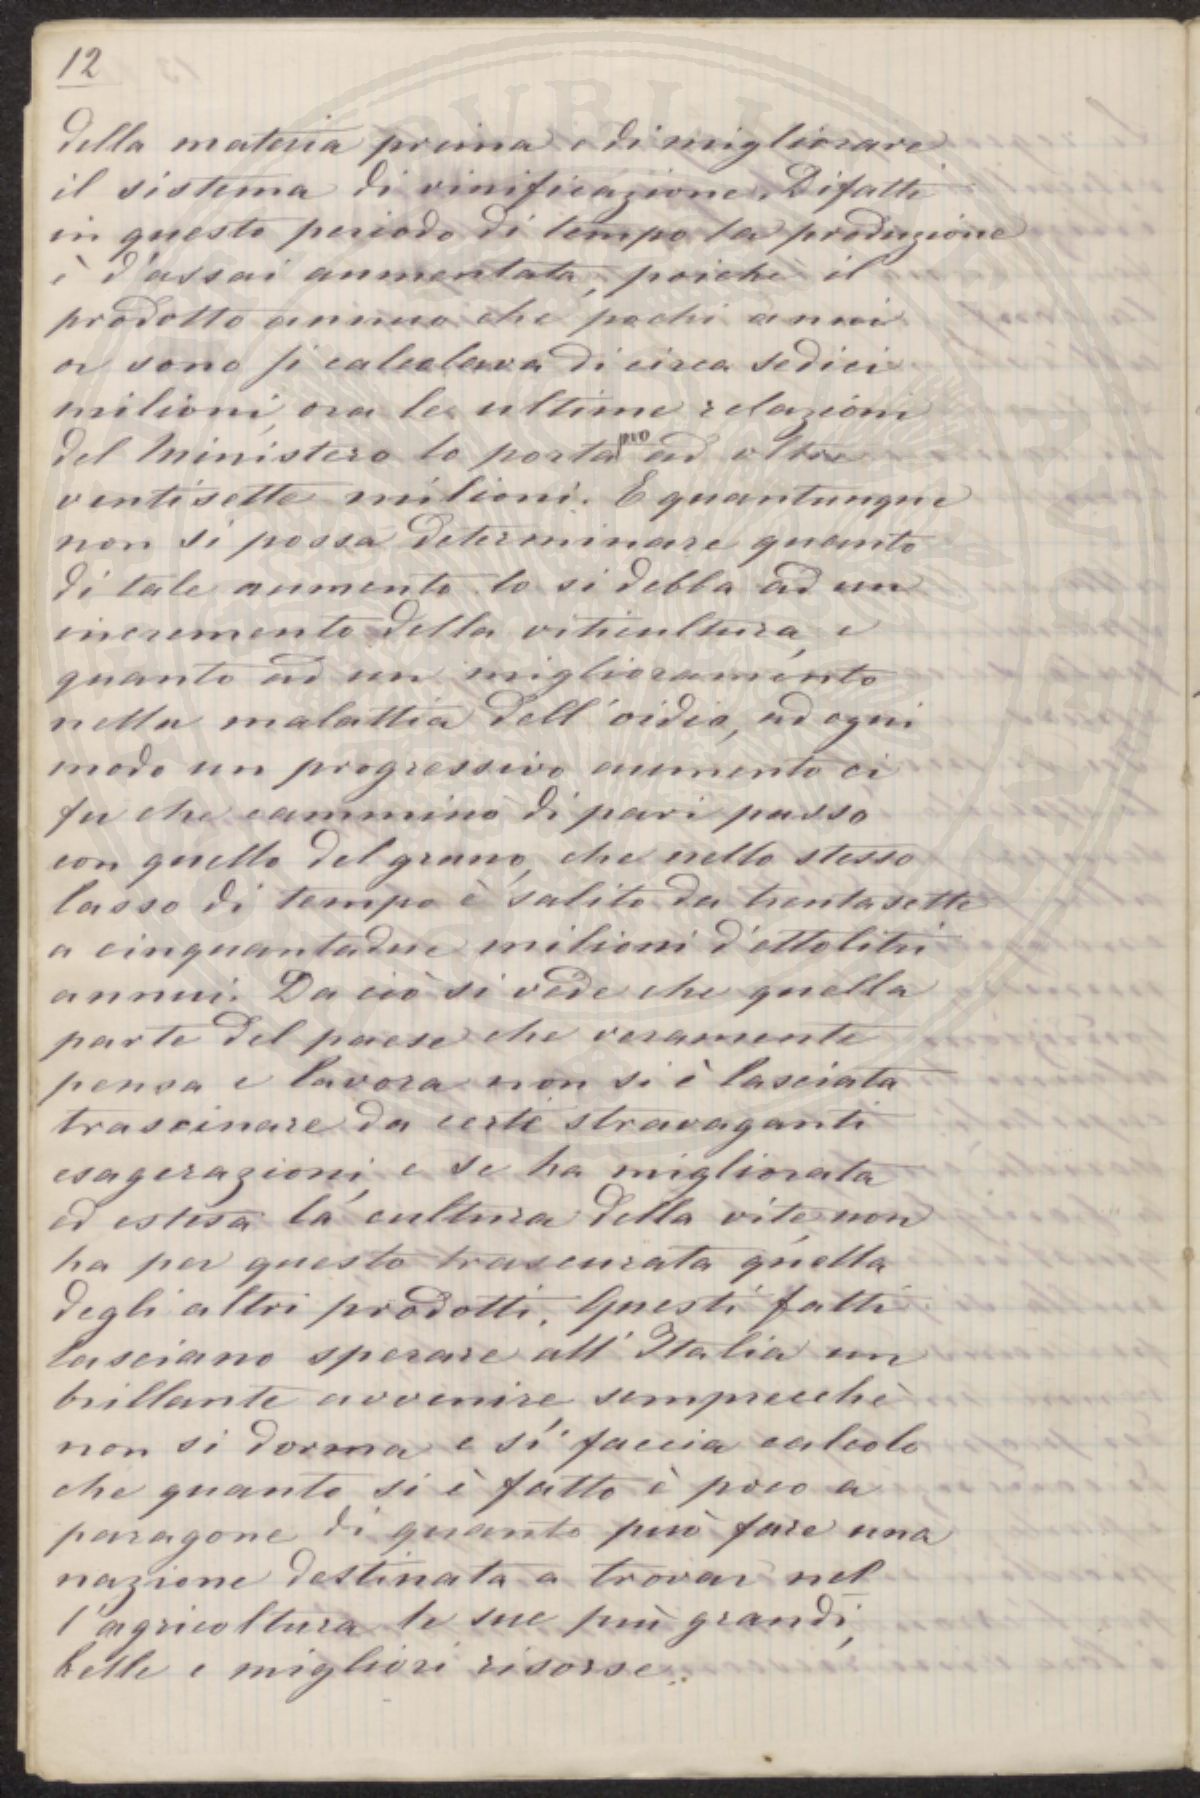 12
della materia prima e di migliorare
il sistema di vinificazione. Difatti
in questo periodo di tempo la produzione
è d'assai aumentata, poichè il
prodotto annuo che pochi anni
or sono si calcolava di circa sedici
milioni, ora le ultime relazioni
del Ministero lo porta no ad oltre
ventisette milioni. E quantunque
non si possa determinare quanto
di tale aumento lo si debba ad un
incremento della viticultura, e
quanto ad un miglioramento
nella malattia dell'oidio, ad ogni
modo un progressivo aumento ci
fu che camminò di pari passo
con quello del grano, che nello stesso
lasso di tempo è salito da trentasette
a cinquantadue milioni d'ettolitri
annui. Da ciò si vede che quella
parte del paese che veramente
pensa e lavora non si è lasciata
trascinare da certe stravaganti
esagerazioni, e se ha migliorata
ed estesa la cultura della vite, non
ha per questo trascurata quella
degli altri prodotti. Questi fatti
lasciano sperare all'Italia un
brillante avvenire, sempreechè
non si dorma e si faccia calcolo
che quanto si è fatto è poco a
paragone di quanto può fare una
nazione destinata a trovar nel
l'agricoltura le sue più grandi,
belle e migliori risorse.